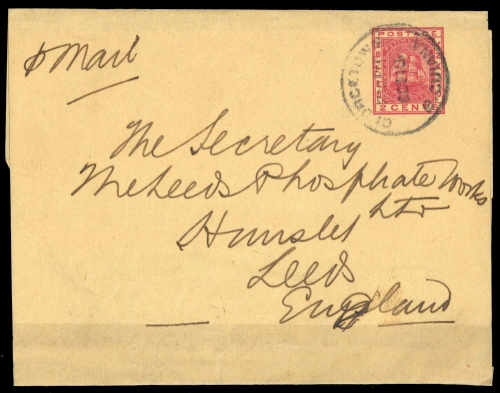 p Mail
POSTAGE
2 CENTS
GEORGETOWN
The Secretary
The Leeds Phosphate Works
Ltd
Hunslet
Leeds
England